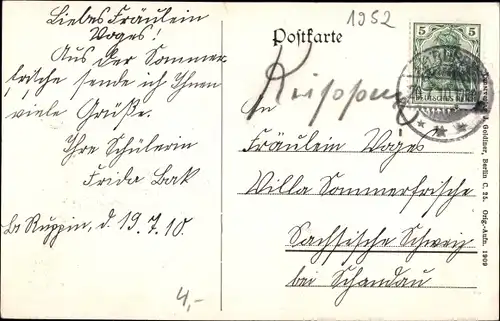 Liebes Fräulein
Voges!
Aus der Sommer
frische sende ich Ihnen
viele Grüße.
Ihre Schülerin
Frida Bak
Ruppin, d. 19.7.10.
4,-
1952
Postkarte
5 5
DEUTSCHES REICH
An
Fräulein Voges
Villa Sommerfrische
Sächsische Schweiz
bei Schandau
J. Goldiner, Berlin C. 25. Orig.-Aufn. 1909